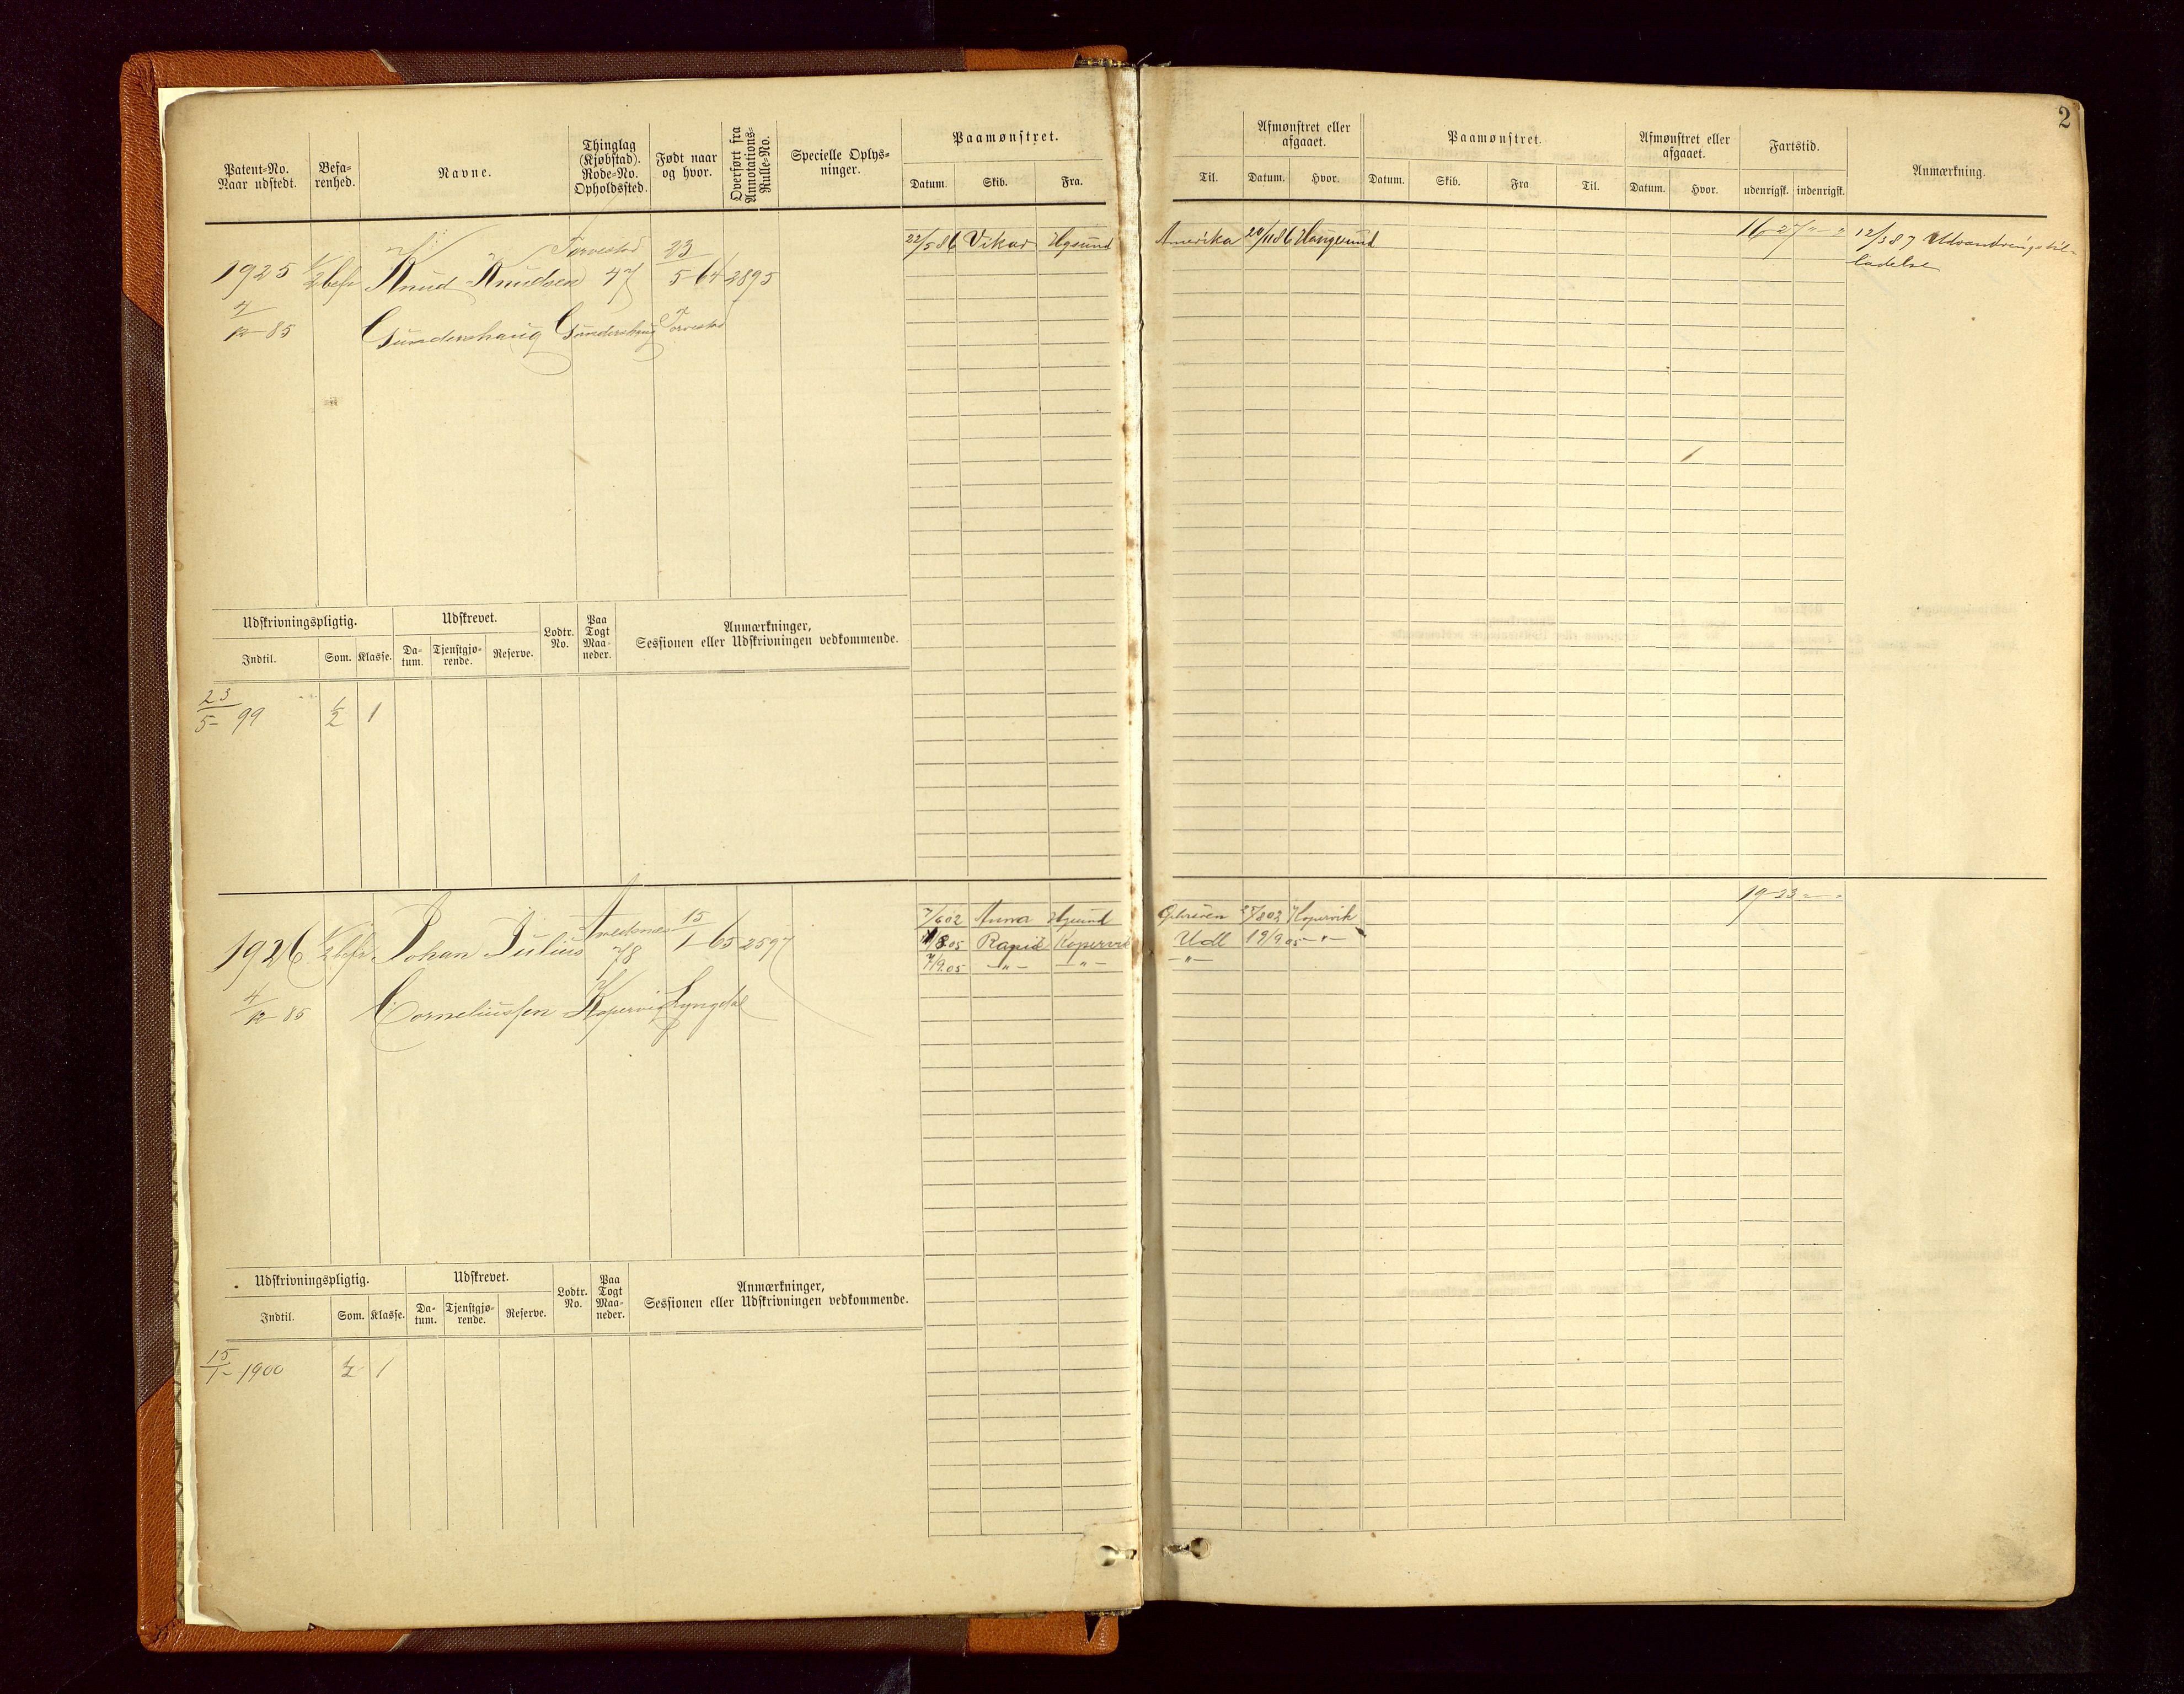 2
Patent-No.
Naar udstedt.
Befa-
renhed.
Navne.
Thinglag
(Kjøbstad).
Rode-No.
Opholdssted.
Født naar
og hvor.
Overført fra
Annotations-
Rulle-No.
Specielle Oplys-
ninger.
Paamønstret.
Datum. Skib. Fra.
Til.
Afmønstret eller
afgaaet.
Datum. Hvor.
Paamønstret.
Datum. Skib. Fra Til.
Afmønstret eller
afgaaet.
Datum. Hvor.
Fartstid.
udenrigsk. indenrigsk.
Anmærkning.
Torvestad 23
1925 1/2 befr Knud Knudsen 47 5-64 2895
4/12 85 Gundershaug Gundershaug Torvestad
22/5 86 Vikar Hgsund Amerika 20/11 86 Haugesund 16-27 " " 12/3 87 Udvandringstil-
ladelse
Udskrivningspligtig. Udskrevet. Lodtr.
No. Paa
Togt
Maa-
neder. Anmærkninger,
Sessionen eller Udskrivningen vedkommende.
Indtil. Som. Klasse. Da-
tum. Tjenstgjø-
rende. Reserve.
23/5- 99 1/2 1
1926 1/2 befr Johan Julius 78 15/1-65 2597
4/12 85 Corneliussen Kopervig Lyngdal
7/6 02 Anna Hgsund 25/8 02 Kopervik 19-23 - "
/8 05 Rapid Kopervik Udl 19/9 05 - " -
7/9 05 - " - - " - - " -
Udskrivningspligtig. Udskrevet. Lodtr.
No. Paa
Togt
Maa-
neder. Anmærkninger,
Sessionen eller Udskrivningen vedkommende.
Indtil. Som. Klasse. Da-
tum. Tjenstgjø-
rende. Reserve.
15/1- 1900 1/2 1